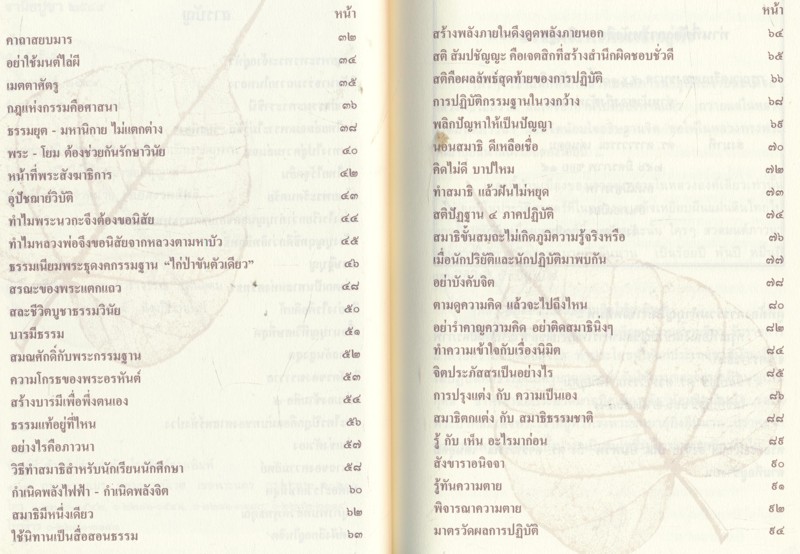 หน้า
คาถาสยบมาร ๓๒
อย่าใช้มนต์ไล่ผี ๓๔
เมตตาศัตรู ๓๕
กฎแห่งกรรมคือศาสนา ๓๖
ธรรมยุต - มหานิกาย ไม่แตกต่าง ๓๘
พระ - โยม ต้องช่วยกันรักษาวินัย ๔๐
หน้าที่พระสังฆาธิการ ๔๒
อุปัชฌาย์วิบัติ ๔๓
ทำไมพระนวกะจึงต้องขอนิสัย ๔๔
ทำไมหลวงพ่อจึงขอนิสัยจากหลวงตามหาบัว ๔๕
ธรรมเนียมพระธุดงคกรรมฐาน “ไก่ป่าขันตัวเดียว” ๔๖
สรณะของพระแตกแถว ๔๘
สละชีวิตบูชาธรรมวินัย ๕๐
บารมีธรรม ๕๑
สมณศักดิ์กับพระกรรมฐาน ๕๒
ความโกรธของพระอรหันต์ ๕๓
สร้างบารมีเพื่อพึ่งตนเอง ๕๔
ธรรมแท้อยู่ที่ไหน ๕๖
อย่างไรคือภาวนา ๕๗
วิธีทำสมาธิสำหรับนักเรียนนักศึกษา ๕๘
กำเนิดพลังไฟฟ้า - กำเนิดพลังจิต ๖๐
สมาธิมีหนึ่งเดียว ๖๒
ใช้นิทานเป็นสื่อสอนธรรม ๖๓
หน้า
สร้างพลังภายในดึงดูดพลังภายนอก ๖๔
สติ สัมปชัญญะ คือเจตสิกที่สร้างสำนึกผิดชอบชั่วดี ๖๕
สติคือผลลัพธ์สุดท้ายของการปฏิบัติ ๖๖
การปฏิบัติกรรมฐานในวงกว้าง ๖๘
พลิกปัญหาให้เป็นปัญญา ๖๙
นอนสมาธิ ดีเหลือเชื่อ ๗๐
คิดไม่ดี บาปไหม ๗๒
ทำสมาธิ แล้วฝันไม่หยุด ๗๓
สติปัฏฐาน ๔ ภาคปฏิบัติ ๗๔
สมาธิขั้นสมถะไม่เกิดภูมิความรู้จริงหรือ ๗๖
เมื่อนักปริยัติและนักปฏิบัติมาพบกัน ๗๗
อย่าบังคับจิต ๗๘
ตามดูความคิด แล้วจะไปถึงไหน ๘๐
อย่ารำคาญความคิด อย่าติดสมาธินิ่งๆ ๘๒
ทำความเข้าใจกับเรื่องนิมิต ๘๔
จิตประภัสสรเป็นอย่างไร ๘๕
การปรุงแต่ง กับ ความเป็นเอง ๘๖
สมาธิตกแต่ง กับ สมาธิธรรมชาติ ๘๘
รู้ กับ เห็น อะไรมาก่อน ๘๙
สังขาราอนิจจา ๙๐
รู้ทันความตาย ๙๑
พิจารณาความตาย ๙๒
มาตรวัดผลการปฏิบัติ ๙๔